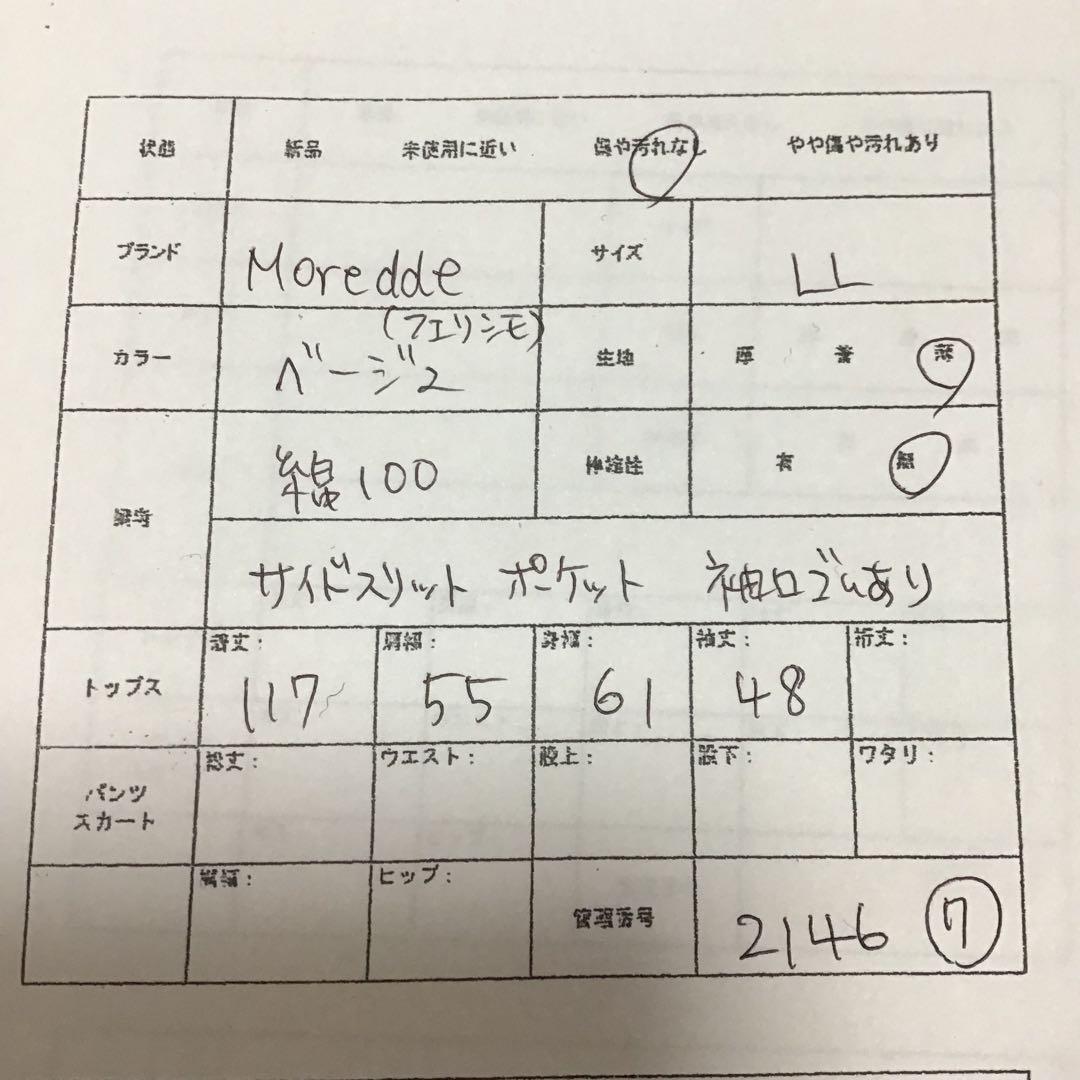 状態 新品 未使用に近い 傷や汚れなし やや傷や汚れあり
ブランド Moredde サイズ LL
(フェリシモ)
カラー ベージュ 生地 厚 普 薄
備考 綿100 伸縮性 有 無
サイドスリット ポケット 袖口ゴムあり
トップス 着丈: 肩幅: 身幅: 袖丈: 裄丈:
117 55 61 48
パンツ スカート 総丈: ウエスト: 股上: 股下: ワタリ:
裾幅: ヒップ: 管理番号 2146 ⑦